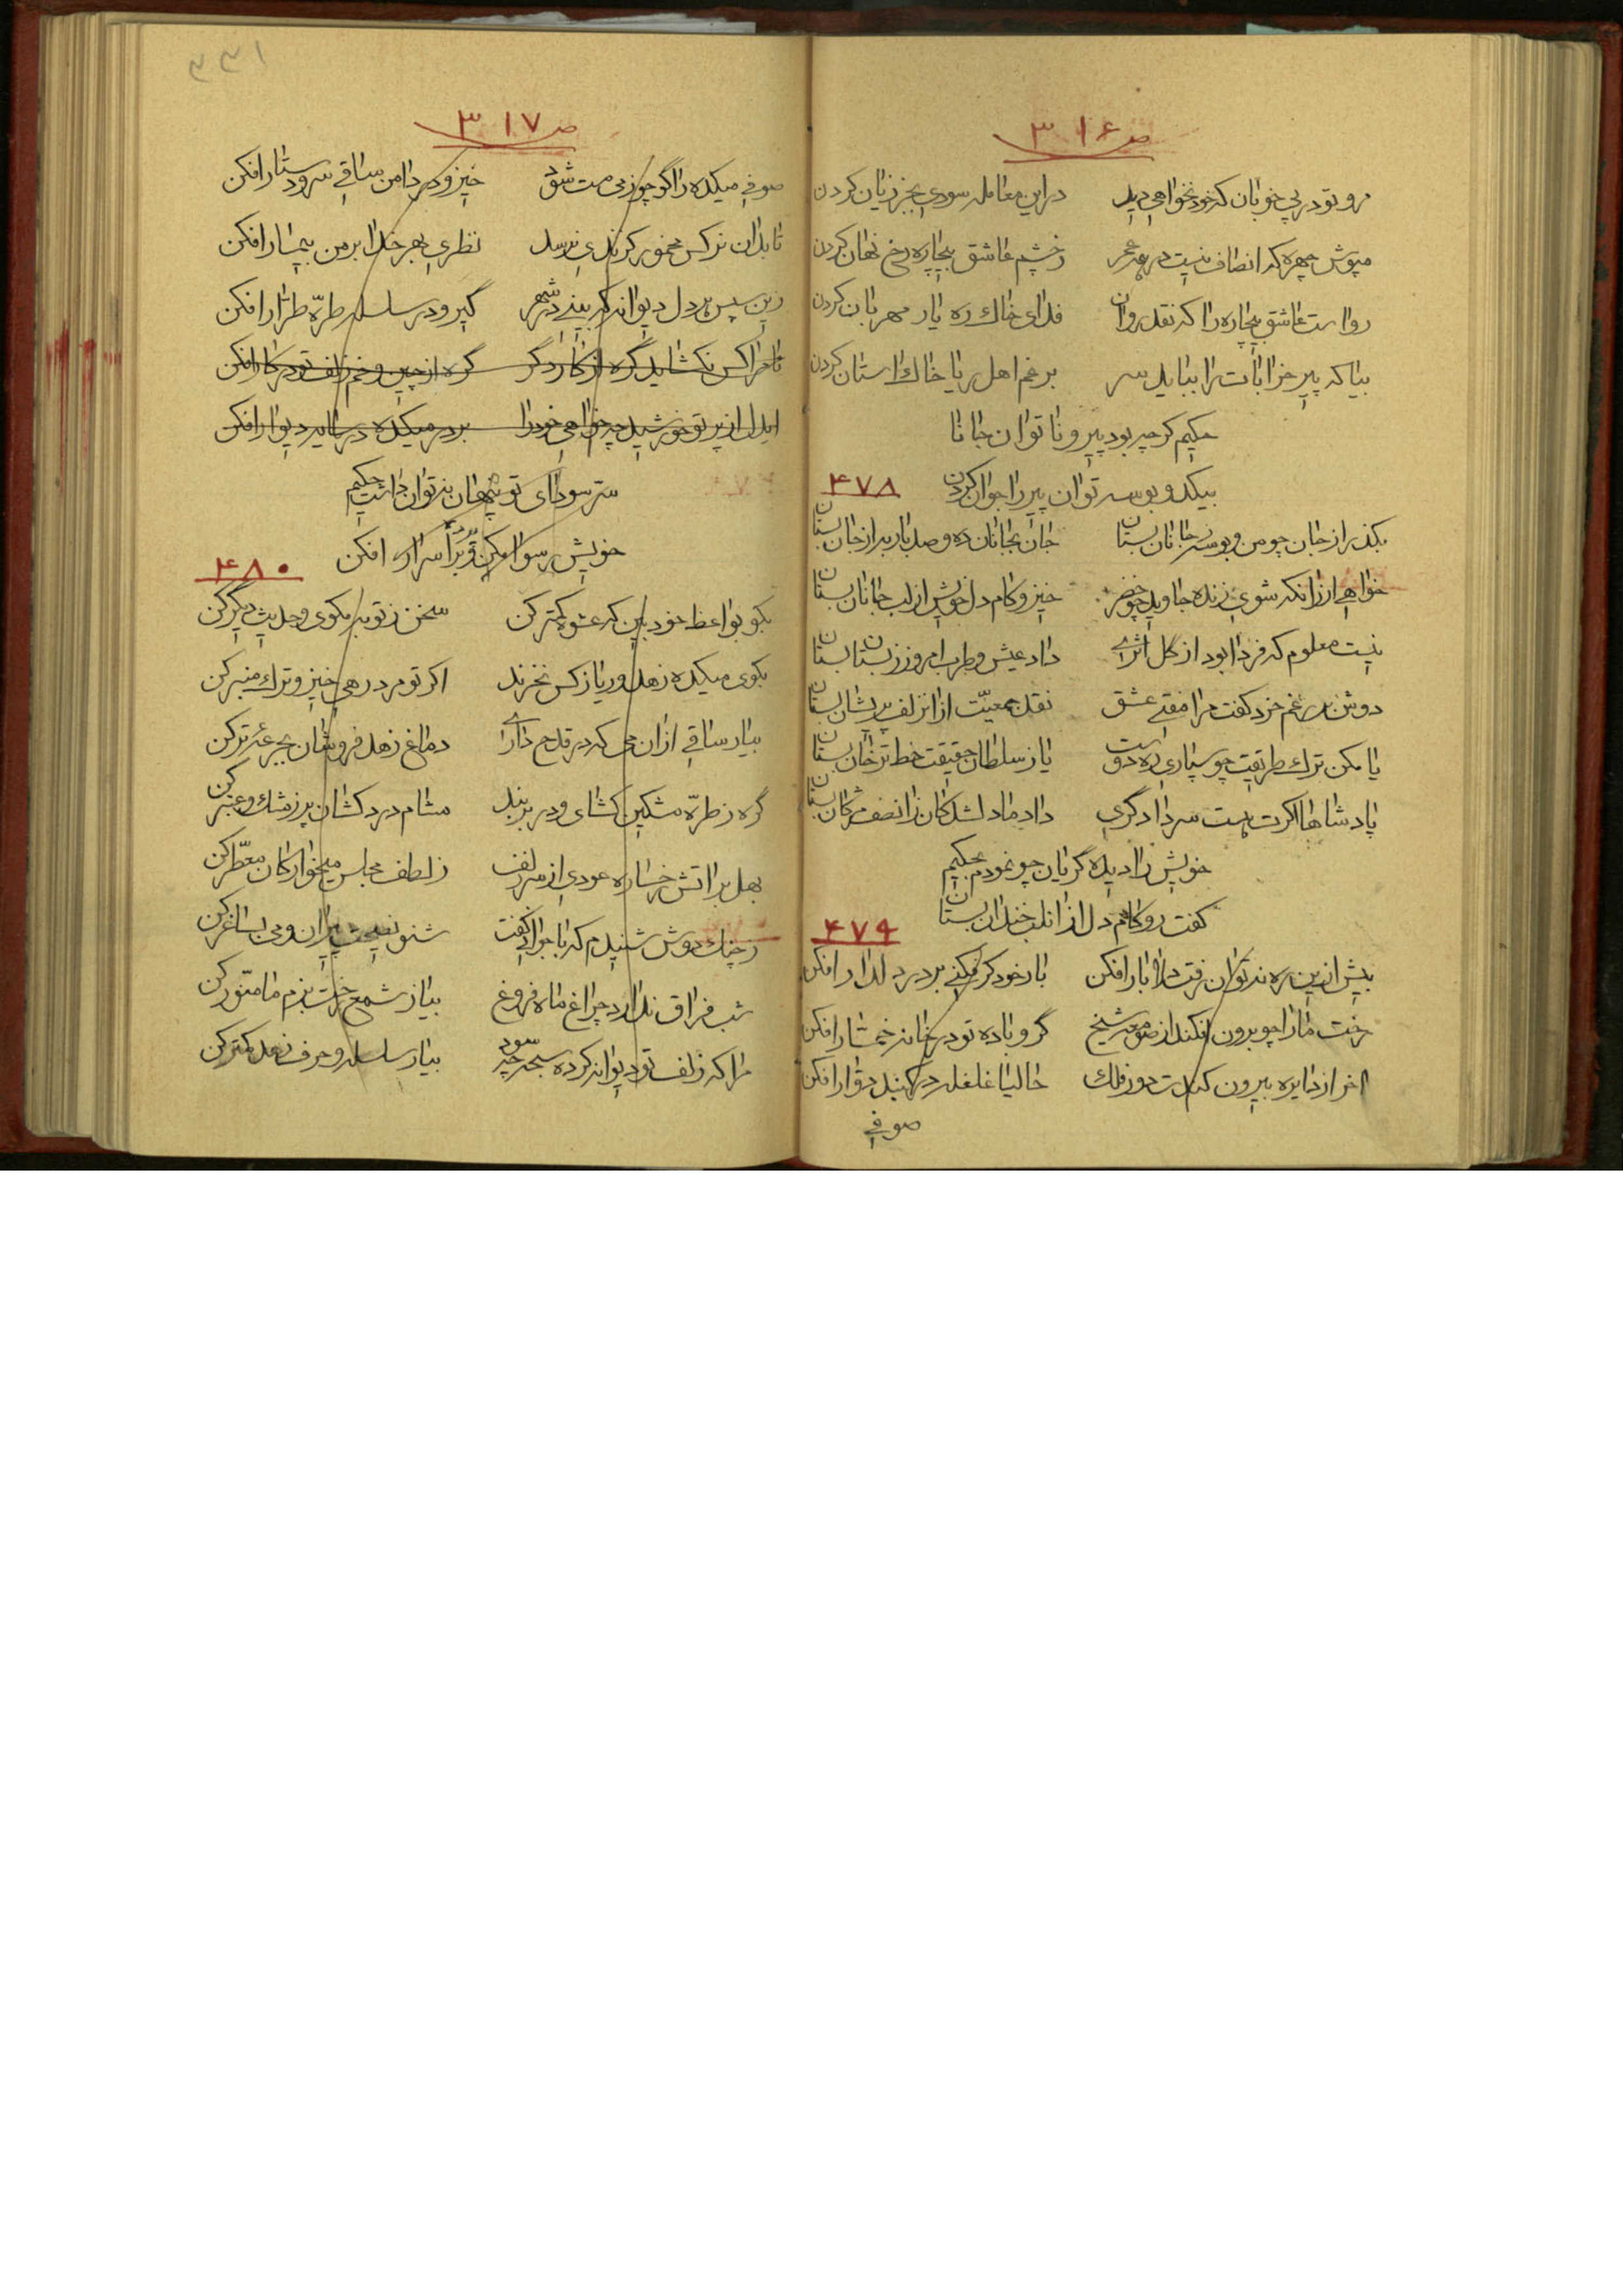 ص ۳۱۶
رو تو در پی خوبان که خود نخواهی دید در این معامله سودی بجز زیان کردن
مپوش چهره که انصاف نیست در همه عمر ز چشم عاشق بیچاره رخ نهان کردن
رواست عاشق بیچاره را که نقد روان فدای خاک ره یار مهربان کردن
بیا که پیر خرابات را بباید سر برغم اهل ریا خاک استان کردن
حکیم گرچه بود پیر و ناتوان جانا
بیکدو بوسه توان پیر را جوان کردن
۴۷۸
بگذر از جان چو من و بوسه ز جانان بستان جان بجانان ده و صد بار به از جان بستان
خواهی ار زانکه شوی زنده جاوید چو خضر خیز و کام دل خویش از لب جانان بستان
نیست معلوم که فردا بود از گل اثری داد عیش و طرب امروز ز بستان بستان
دوش بر رغم خرد گفت مرا مفتی عشق نقد جمعیت از ان زلف پریشان بستان
یا مکن ترک طریقت چو سپاری ره دوست یا ز سلطان حقیقت خط ترخان بستان
پادشاها اگرت هست سر دادگری داد ما دلشدگان زانصف مژگان بستان
خویش را دیده گریان چو نمودم بحکیم
گفت رو کام دل از انلب خندان بستان
۴۷۹
بیش ازین ره نتوان رفت دلا بار افکن بار خود گر فکنی بر در دلدار افکن
رخت ما را چو برون افکند از صومعه شیخ گرو باده تو در خانه خمار افکن
اخر از دایره بیرون کندت دور فلک حالیا غلغله در گنبد دوار افکن
صوفی
۳۳۱
ص ۳۱۷
صوفی میکده را گر چو ز می مست شود خیز و در دامن ساقی سر و دستار افکن
تا بدان نرگس مخمور گزندی نرسد نظری بهر خدا بر من بیمار افکن
زین سپس هر دل دیوانه که بینی در شهر گیر و در سلسله طره طرار افکن
تا مرا کس نگشاید گره از کار دگر گره از چین و خم زلف تو در کار افکن
ایدل از پرتو خورشید چه خواهی خود را بر در میکده در سایه دیوار افکن
ستر سودای تو پنهان نتوان داشت حکیم
خویش رسوا کن و پرده اسرار افکن
۴۸۰
بگو بواعظ خود بین که عشوه کمتر کن سخن ز توبه مگوی و حدیث دیگر کن
بکوی میکده زهد و ریا ز کس نخرند اگر تو مرد رهی خیز و ترک منبر کن
بیار ساقی ازان می که در قدح داری دماغ زهد فروشان بجرعه تر کن
گره ز طره مشکین گشای و در بر بند مشام دردکشان پر ز مشک و عنبر کن
بهل بر اتش رخساره عودی از سر زلف ز لطف مجلس میخوارگان معطر کن
ز چنگ دوش شنیدم که با جوانی گفت شنو نصیحت پیران و می بساغر کن
شب فراق ندارد چراغ ماه فروغ بیا ز شمع رخت بزم ما منور کن
مرا که زلف تو دیوانه کرده سبحه چه سود بیار سلسله و حرف زهد کمتر کن